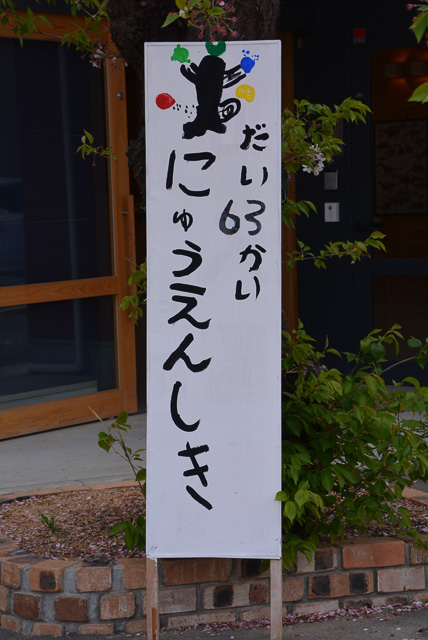 だい63かい
にゅうえんしき